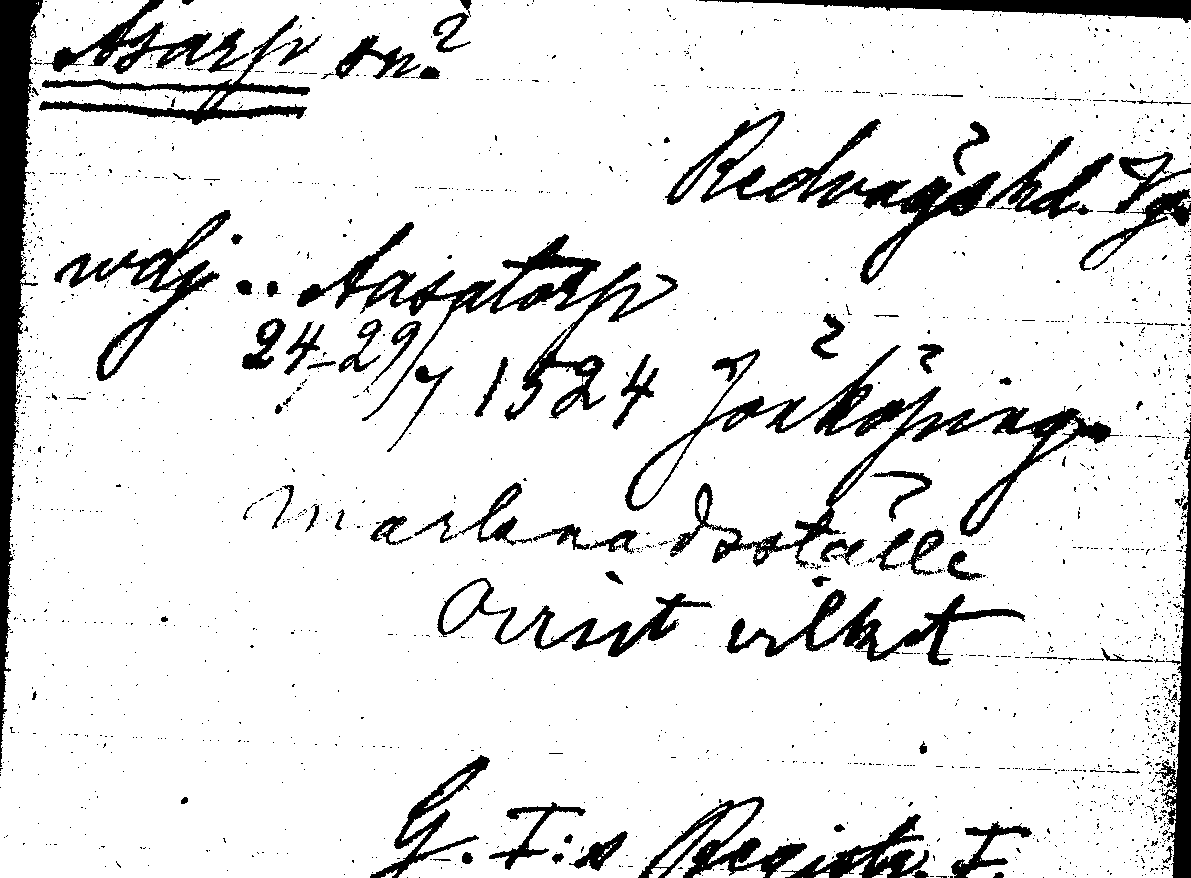 Åsarp sn?
Redvägs hd. Vg.
wdj .. Aasatorp
24–29/7 1524 Jönköping
Marknadsställe
Ovisst vilket
G. I:s Registr. I.